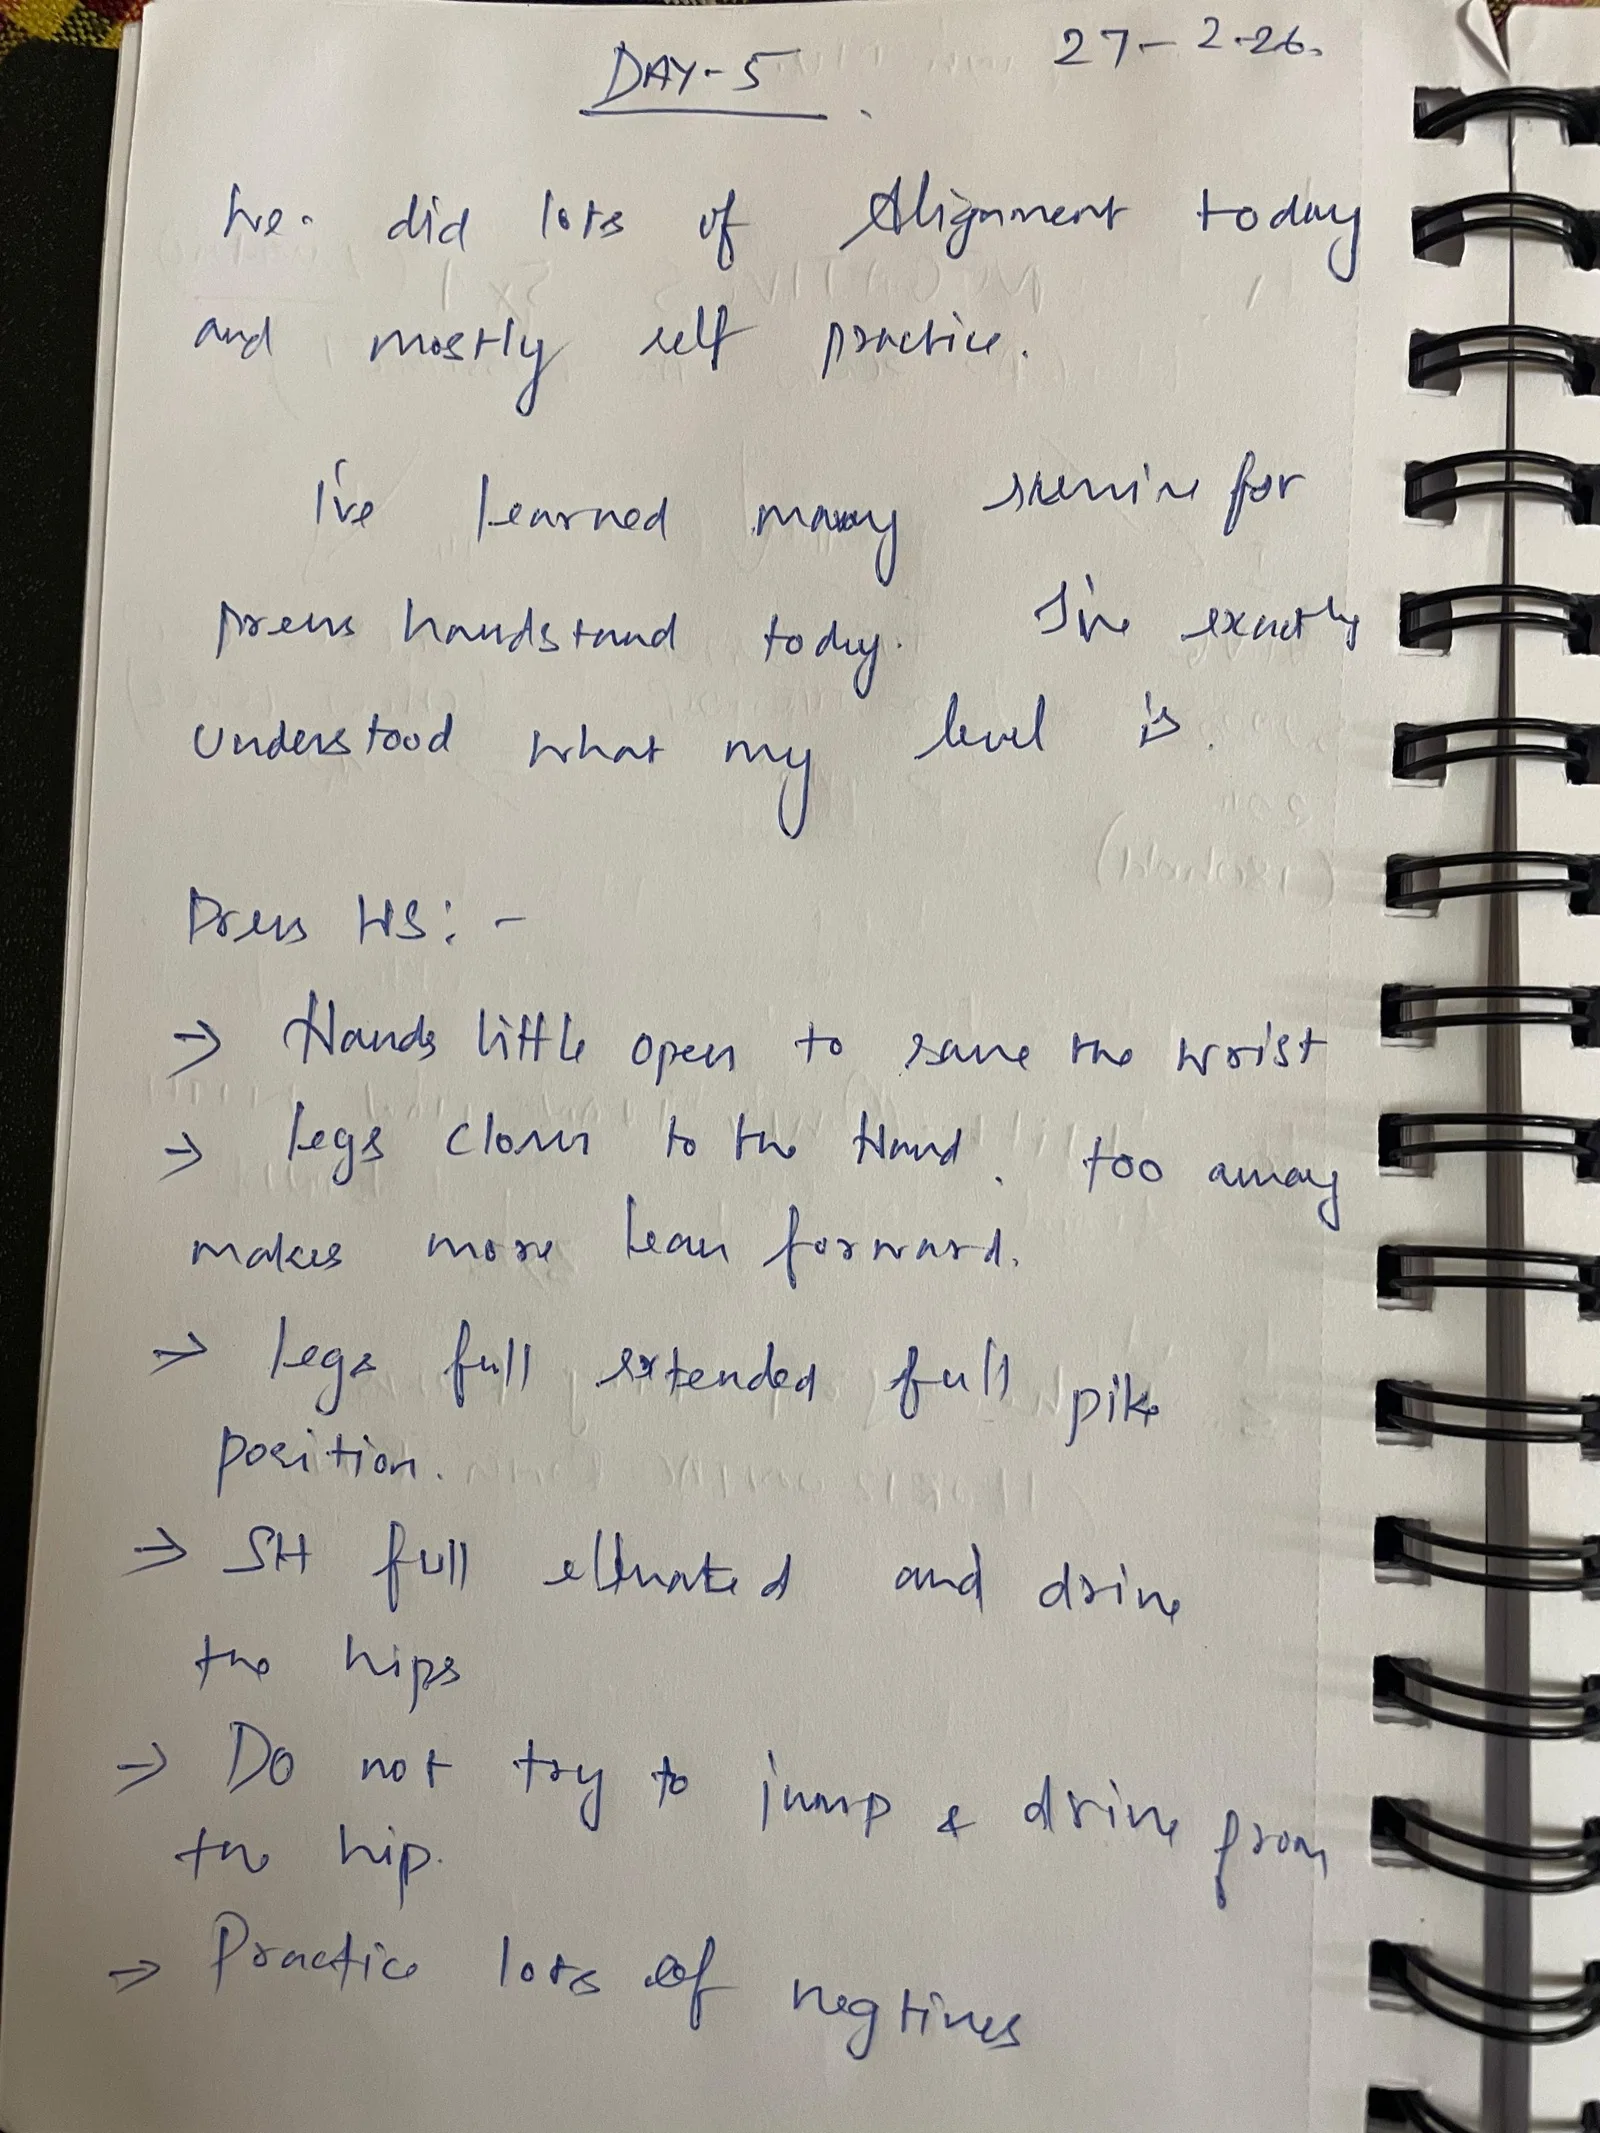 DAY-5
27-2-26.
We did lots of Alignment today
and mostly self practice.
I've learned many for
press handstand today. I've exactly
understood what my level is.
Press HS:-
→ Hands little open to save the wrist
→ Legs closer to the Hand. too away
makes more lean forward.
→ Legs full extended full pike
position.
→ SH full elevated and drive
the hips
→ Do not try to jump & drive from
the hip.
→ Practice lots of negtives